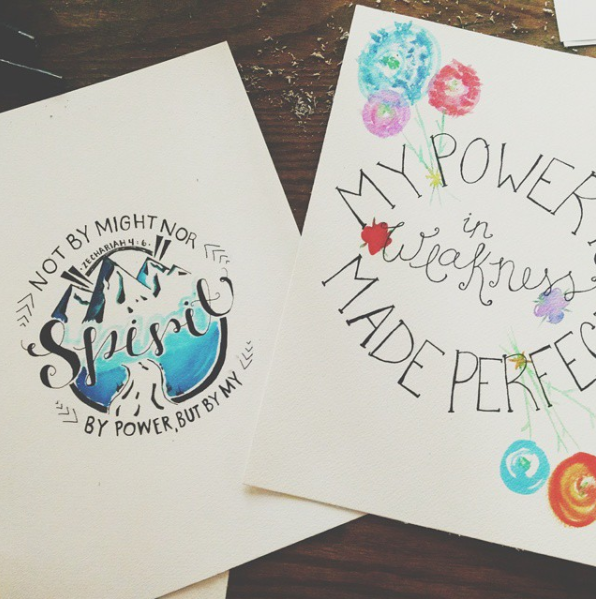 NOT BY MIGHT NOR
ZECHARIAH 4:6.
Spirit
BY POWER, BUT BY MY
MY POWER
in
Weakness
MADE PERFEC